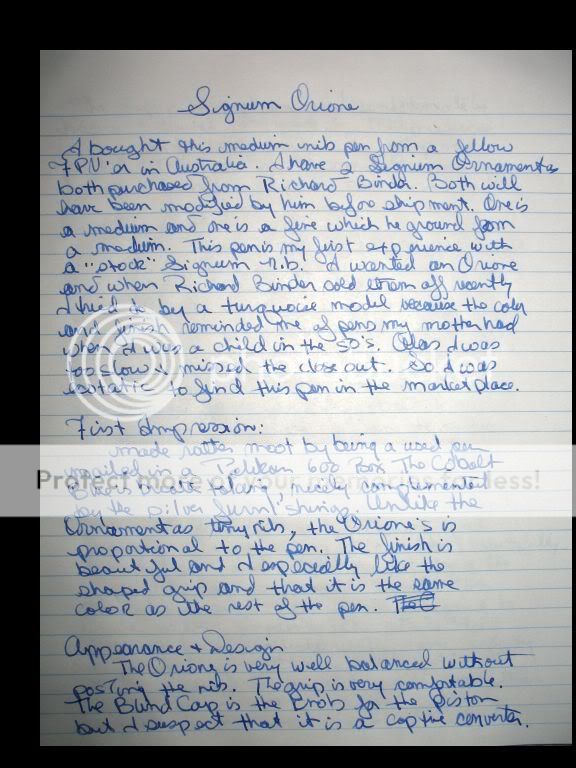 Signum Orione
I bought this medium nib pen from a fellow
FPN'er in Australia. I have 2 Signum Ornamentas
both purchased from Richard Binder. Both will
have been modified by him before shipment. One is
a medium and one is a fine which he ground from
a medium. This pen is my first experience with
a "stock" Signum nib. I wanted an Orione
and when Richard Binder sold them off recently
I tried to buy a turquoise model because the color
and finish reminded me of pens my mother had
when I was a child in the 50's. Alas I was
too slow & missed the close out. So I was
ecstatic to find this pen in the market place.
First Impression:
made rather moot by being a used pen
mailed in a Pelikan 600 Box The Cobalt
Blue is breath taking, nicely complemented
by the silver furnishings. Unlike the
Ornamentas tiny nibs, the Orione's is
proportional to the pen. The finish is
beautiful and I especially like the
shaped grip and that it is the same
color as the rest of the pen.
Appearance & Design
The Orione is very well balanced without
posting the nib. The grip is very comfortable.
The Blind Cap is the knob for the piston
but I suspect that it is a captive converter.
Protect more of your memories for less!